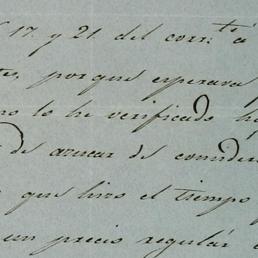 17. y 21. del corr.te á
porque esperava
no lo he verificado
de azucar de consider
que hizo el tiempo y
un precio regulár